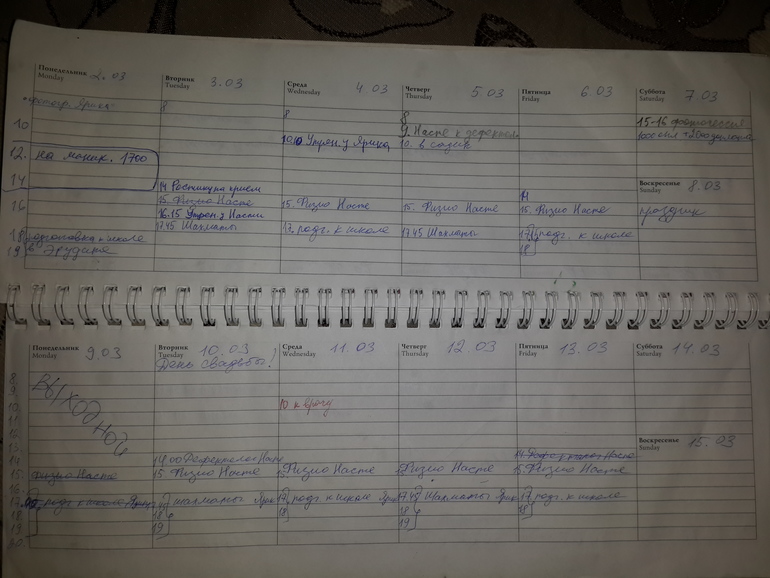 Понедельник
Monday
2.03
10
12. на маник. 1700
14
16
18 подготовка к школе
19 в Эрудите
Вторник
Tuesday
3.03
8
15. Физио Насте
16.15 Утрен. у Насти
17.45 Шахматы
Среда
Wednesday
4.03
8
Утрен. у Ярика
15. Физио Насте
17. подг. к школе
Четверг
Thursday
5.03
8
9. Насте к дефектол
10. в садик
15. Физио Насте
17.45 Шахматы
Пятница
Friday
6.03
14
15. Физио Насте
17 подг. к школе
18
Суббота
Saturday
7.03
15-16 фотосессия
Воскресенье
Sunday
8.03
праздник
Понедельник
Monday
9.03
8.
9.
10.
11.
12.
13.
14.
15.
16.
17.
18.
19.
20.
Выходной
Физио Насте
подг. к школе Ярик
Вторник
Tuesday
10.03
День свадьбы!
14 00 Дефектолог Настя
15. Физио Насте
17 шахматы Ярик
18
19
Среда
Wednesday
11.03
10 к врачу
15. Физио Насте
17 подг к школе Ярик
18
Четверг
Thursday
12.03
15. Физио Насте
17.45 Шахматы Ярик
18
19
Пятница
Friday
13.03
15. Физио Насте
17 подг. к школе
18
Суббота
Saturday
14.03
Воскресенье
Sunday
15.03